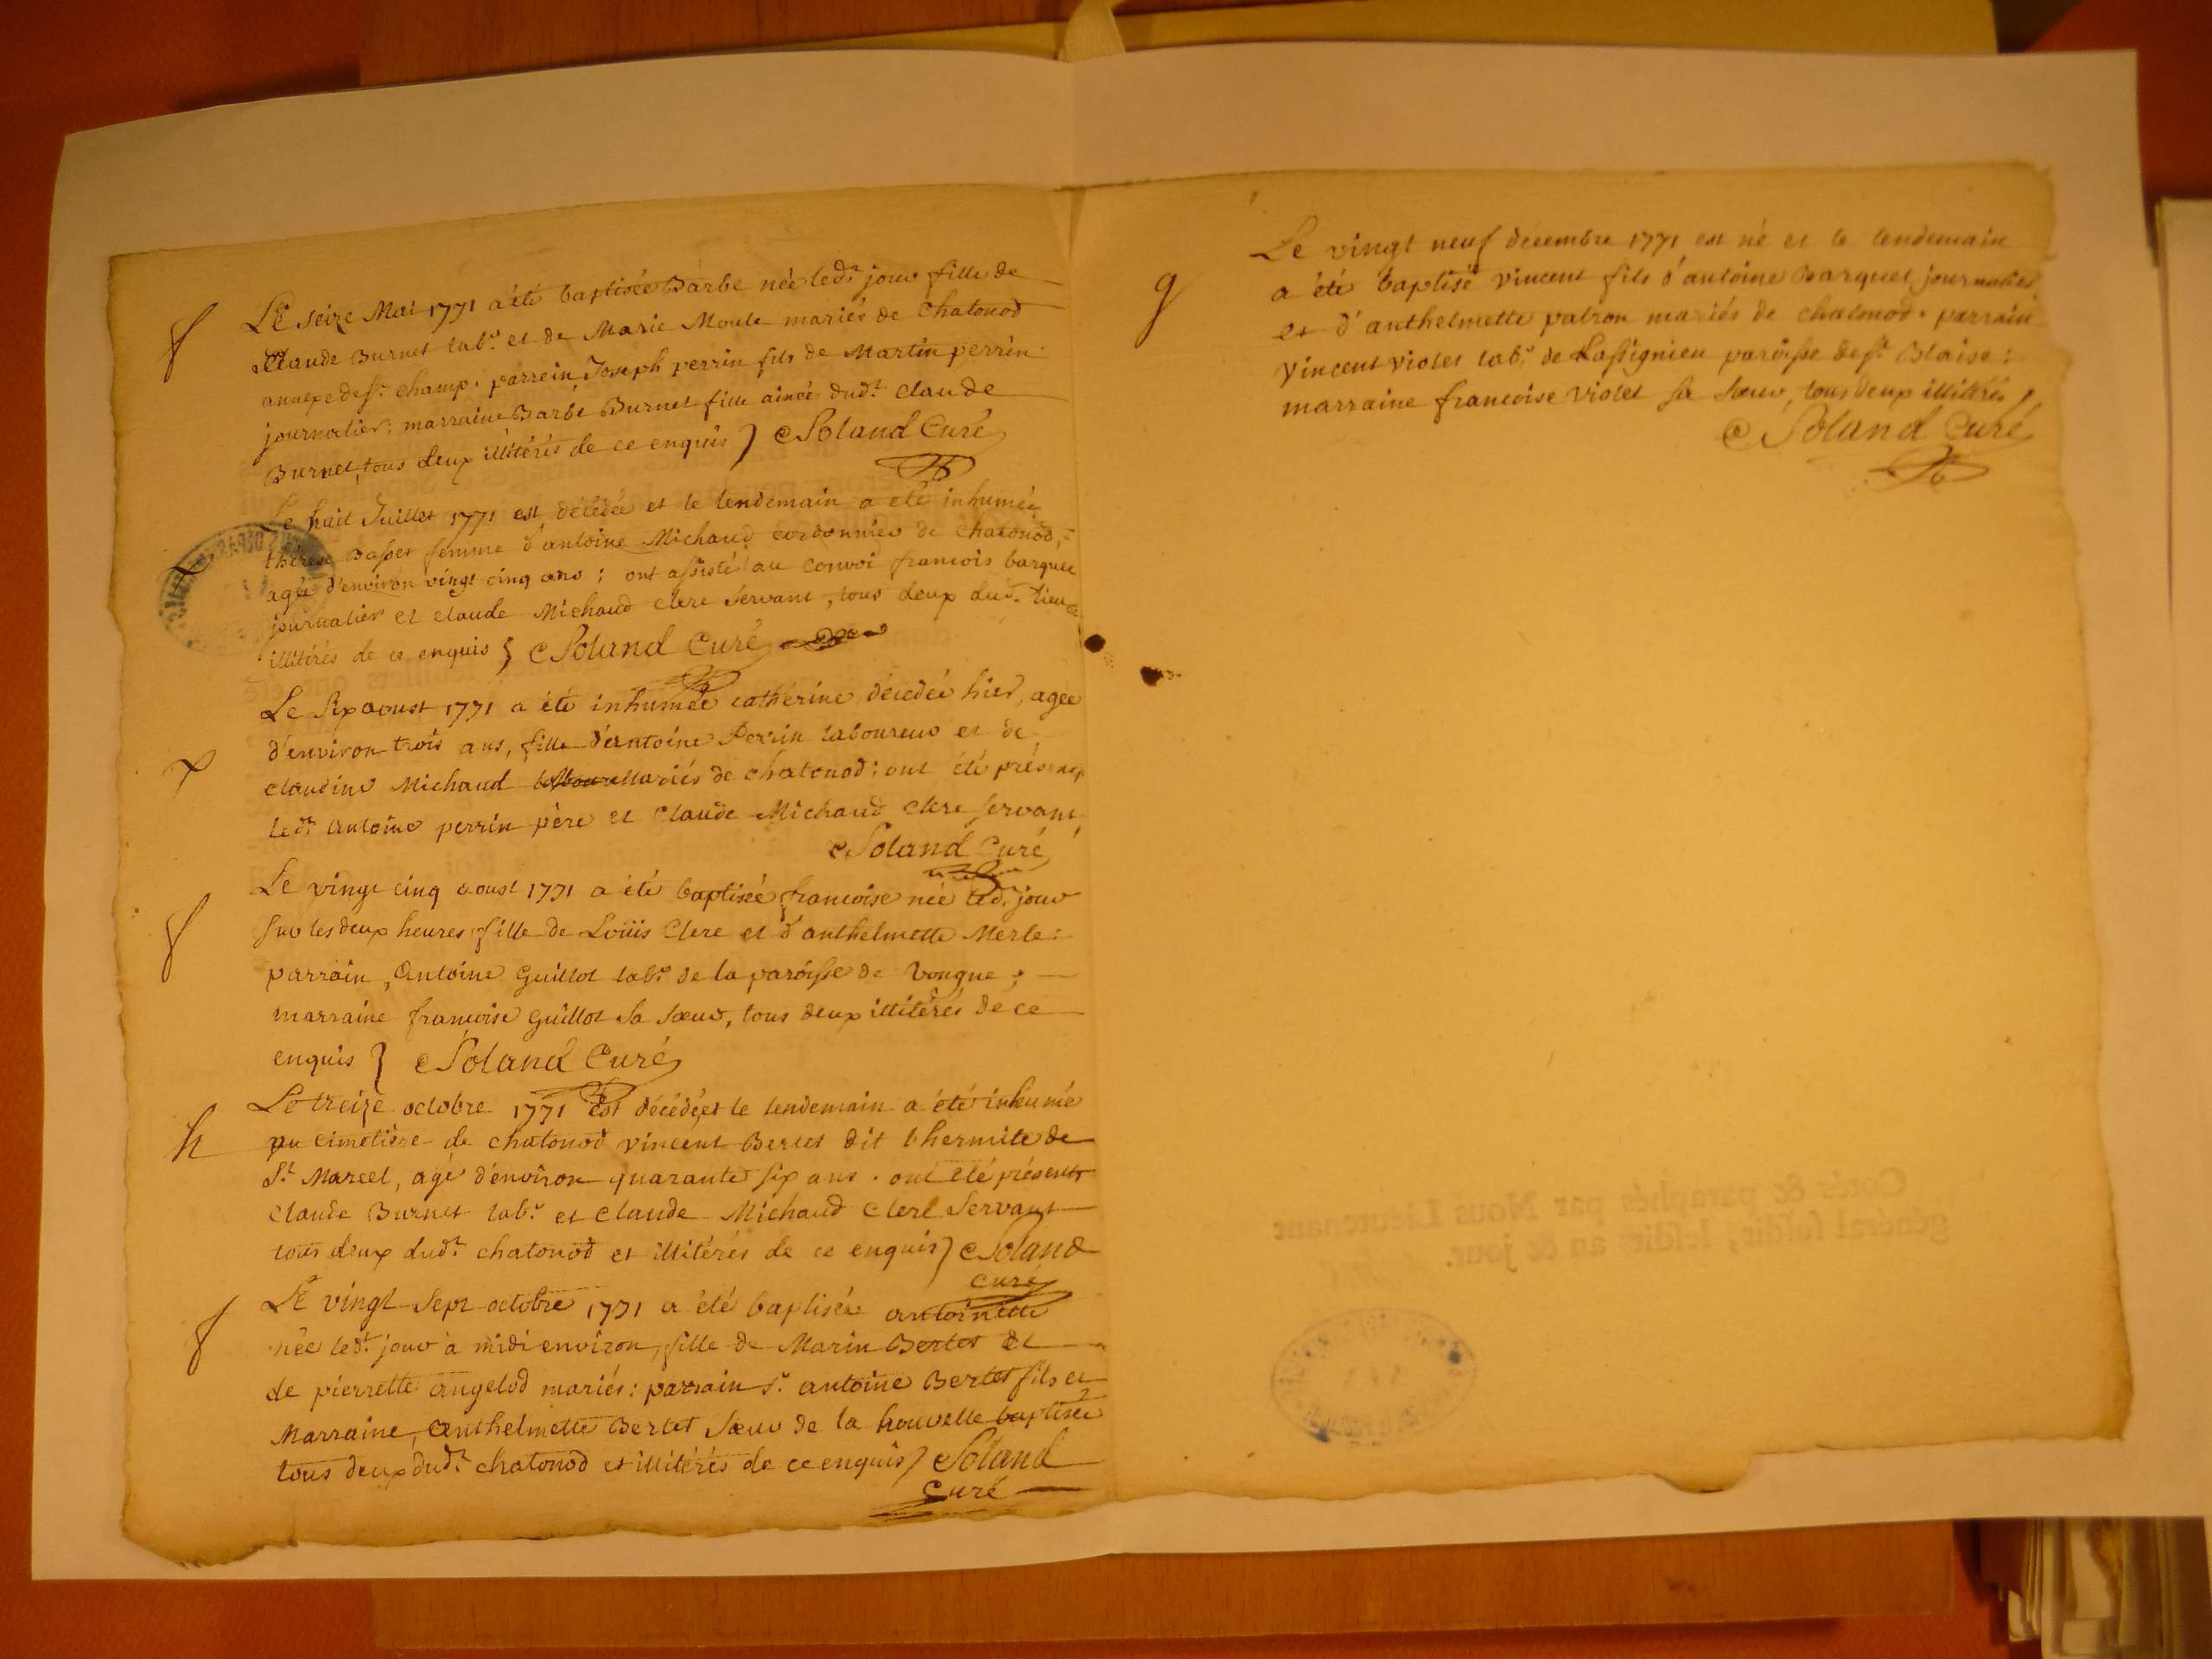 f
Le seize Mai 1771 a été baptisée Barbe née led.t jour fille de
Claude Burnet lab.r et de Marie Moule mariés de Chatonod
annexe de S.t champ. parrein Joseph perrin fils de Martin perrin
journalier: marraine Barbe Burnet fille ainée dud.t Claude
Burnet, tous deux illitérés de ce enquis } Soland Curé
Le huit Juillet 1771 est décédée et le lendemain a été inhumée
thérese Basset femme d'antoine Michaud cordonnier de Chatonod,
agée d'environ vingt cinq ans; ont assisté au convoi francois barquet
journalier et claude Michaud clerc servant, tous deux dud. lieu
illitérés de ce enquis } Soland Curé
Le six aoust 1771 a été inhumée cathérine décédée hier, agée
d'environ trois ans, fille d'antoine Perrin laboureur et de
claudine Michaud mariés de chatonod: ont été présens
led.t antoine perrin père et Claude Michaud clerc servant
Soland Curé
f
Le vingt cinq aoust 1771 a été baptisée francoise née led. jour
sur les deux heures, fille de Loüis Clerc et d'anthelmette Merle:
parrain, Antoine Guillot lab.r de la paroisse de Vongne;
marraine francoise Guillot sa sœur, tous deux illitérés de ce
enquis } Soland Curé
h
Le treize octobre 1771 est décédé, et le lendemain a été inhumé
au cimetière de chatonod vincent Bertet dit l'hermite de
S.t Marcel, agé d'environ quarante six ans. ont été présents
Claude Burnet lab.r et Claude Michaud Clerc Servant
tous deux dud.t chatonod et illitérés de ce enquis } Soland
curé
f
Le vingt sept octobre 1771 a été baptisée antoinette
née led.t jour à midi environ, fille de Marin Bertet et
de pierrette angelod mariés: parrain S.r antoine Bertet fils et
Marraine, Anthelmette Bertet sœur de la nouvelle baptisée
tous deux dud.t chatonod et illitérés de ce enquis } Soland
Curé
g
Le vingt neuf décembre 1771 est né et le lendemain
a été baptisé vincent fils d'antoine Barquet journalier
et d'anthelmette patron mariés de chatonod. parrain
Vincent Violet lab.r de Lassignieu paroisse de S.t Blaise:
marraine francoise Violet sa sœur, tous deux illitérés
Soland Curé
Cotés & paraphés par Nous Lieutenant
général susdit, lesdits an & jour.